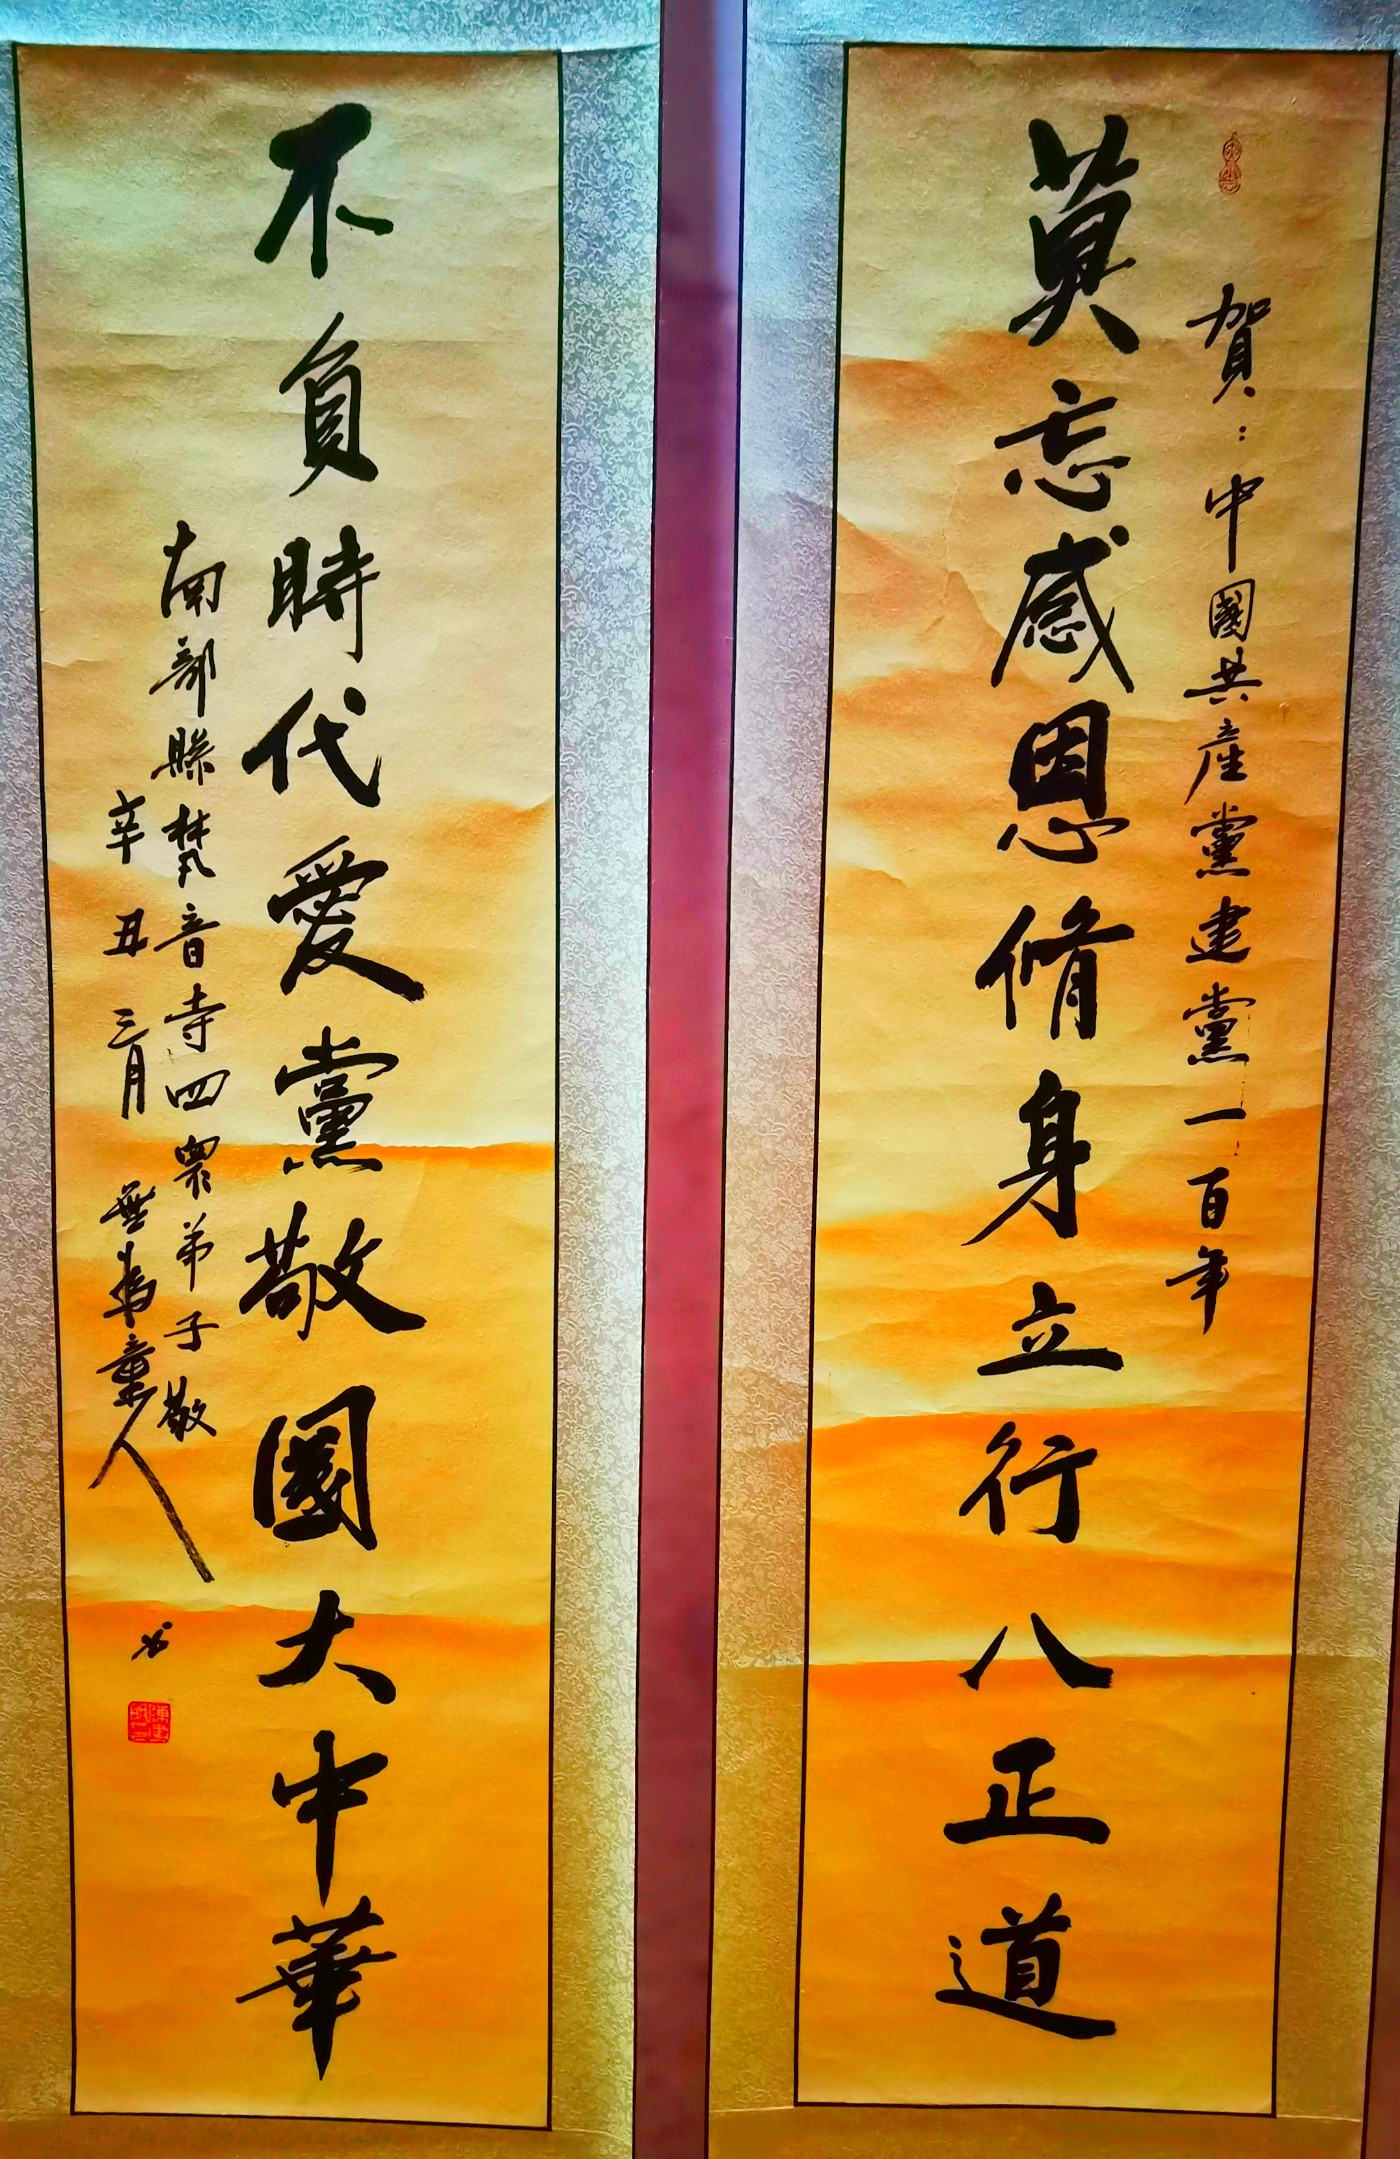 賀：中國共産黨建黨一百年
莫忘感恩脩身立行八正道
不負時代愛黨敬國大中華
南部縣梵音寺四眾弟子敬
辛丑三月無為童人书